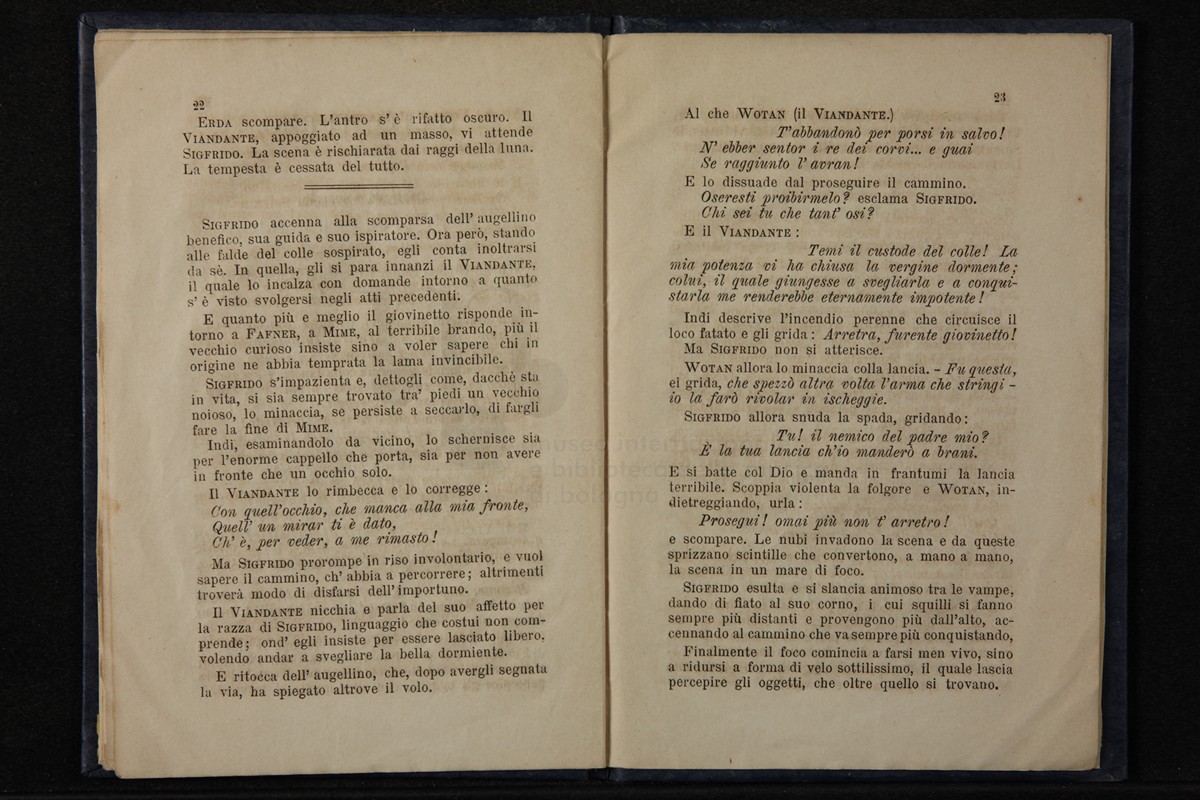 22
ERDA scompare. L'antro s' è rifatto oscuro. Il
VIANDANTE, appoggiato ad un masso, vi attende
SIGFRIDO. La scena è rischiarata dai raggi della luna.
La tempesta è cessata del tutto.
SIGFRIDO accenna alla scomparsa dell' augellino
benefico, sua guida e suo ispiratore. Ora però, stando
alle falde del colle sospirato, egli conta inoltrarsi
da sè. In quella, gli si para innanzi il VIANDANTE,
il quale lo incalza con domande intorno a quanto
s' è visto svolgersi negli atti precedenti.
E quanto più e meglio il giovinetto risponde in-
torno a FAFNER, a MIME, al terribile brando, più il
vecchio curioso insiste sino a voler sapere chi in
origine ne abbia temprata la lama invincibile.
SIGFRIDO s'impazienta e, dettogli come, dacchè sta
in vita, si sia sempre trovato tra' piedi un vecchio
noioso, lo minaccia, se persiste a seccarlo, di fargli
fare la fine di MIME.
Indi, esaminandolo da vicino, lo schernisce sia
per l'enorme cappello che porta, sia per non avere
in fronte che un occhio solo.
Il VIANDANTE lo rimbecca e lo corregge :
Con quell'occhio, che manca alla mia fronte,
Quell' un mirar ti è dato,
Ch' è, per veder, a me rimasto !
Ma SIGFRIDO prorompe in riso involontario, e vuol
sapere il cammino, ch' abbia a percorrere ; altrimenti
troverà modo di disfarsi dell' importuno.
Il VIANDANTE nicchia e parla del suo affetto per
la razza di SIGFRIDO, linguaggio che costui non com-
prende ; ond' egli insiste per essere lasciato libero,
volendo andar a svegliare la bella dormiente.
E ritocca dell' augellino, che, dopo avergli segnata
la via, ha spiegato altrove il volo.
23
Al che WOTAN (il VIANDANTE.)
T'abbandonò per porsi in salvo !
N' ebber sentor i re dei corvi... e guai
Se raggiunto l' avran !
E lo dissuade dal proseguire il cammino.
Oseresti proibirmelo ? esclama SIGFRIDO.
Chi sei tu che tant' osi ?
E il VIANDANTE :
Temi il custode del colle ! La
mia potenza vi ha chiusa la vergine dormente ;
colui, il quale giungesse a svegliarla e a conqui-
starla me renderebbe eternamente impotente !
Indi descrive l'incendio perenne che circuisce il
loco fatato e gli grida : Arretra, furente giovinetto !
Ma SIGFRIDO non si atterisce.
WOTAN allora lo minaccia colla lancia. - Fu questa,
ei grida, che spezzò altra volta l'arma che stringi -
io la farò rivolar in ischeggie.
SIGFRIDO allora snuda la spada, gridando :
Tu ! il nemico del padre mio ?
È la tua lancia ch'io manderò a brani.
E si batte col Dio e manda in frantumi la lancia
terribile. Scoppia violenta la folgore e WOTAN, in-
dietreggiando, urla :
Prosegui ! omai più non t' arretro !
e scompare. Le nubi invadono la scena e da queste
sprizzano scintille che convertono, a mano a mano,
la scena in un mare di foco.
SIGFRIDO esulta e si slancia animoso tra le vampe,
dando di fiato al suo corno, i cui squilli si fanno
sempre più distanti e provengono più dall'alto, ac-
cennando al cammino che va sempre più conquistando,
Finalmente il foco comincia a farsi men vivo, sino
a ridursi a forma di velo sottilissimo, il quale lascia
percepire gli oggetti, che oltre quello si trovano.